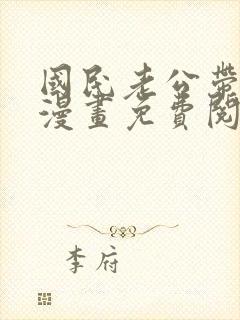 國民老公帶
漫畫免費閱
李府